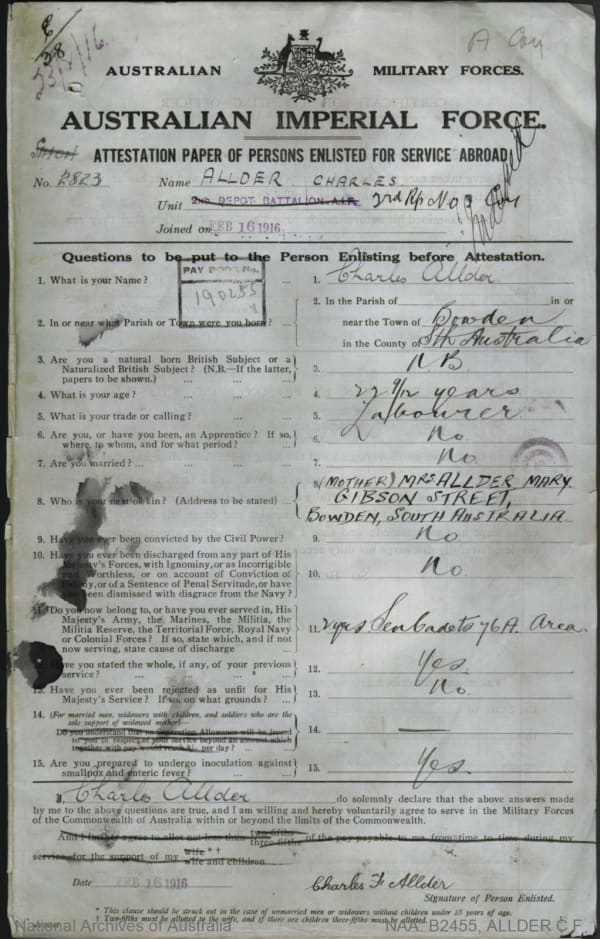 A Coy
23/2/16.
AUSTRALIAN MILITARY FORCES.
AUSTRALIAN IMPERIAL FORCE.
ATTESTATION PAPER OF PERSONS ENLISTED FOR SERVICE ABROAD
No. 2823 Name ALLDER CHARLES.
Unit 2ND DEPOT BATTALION A.I.F.
Joined on FEB 16 1916.
Questions to be put to the Person Enlisting before Attestation.
PAY BOOK No.
190255
1. What is your Name? ... ... 1. Charles Allder
2. In or near what Parish or Town were you born? ... 2. In the Parish of in or
near the Town of Bowden
in the County of Sth Australia
3. Are you a natural born British Subject or a
Naturalized British Subject? (N.B.—If the latter,
papers to be shown.) ... ... 3. N.B.
4. What is your age? ... ... ... 4. 22 9/12 years
5. What is your trade or calling? ... ... 5. Labourer
6. Are you, or have you been, an Apprentice? If so,
where, to whom, and for what period? ... 6. No
7. Are you married? ... ... ... ... 7. No.
8. Who is your next of kin? (Address to be stated) ... 8 (MOTHER) MRS ALLDER MARY
GIBSON STREET,
BOWDEN, SOUTH AUSTRALIA
9. Have you ever been convicted by the Civil Power? 9. No
10. Have you ever been discharged from any part of His
Majesty's Forces, with Ignominy, or as Incorrigible
and Worthless, or on account of Conviction of
Felony, or of a Sentence of Penal Servitude, or have
you been dismissed with disgrace from the Navy? 10. No
11. Do you now belong to, or have you ever served in, His
Majesty's Army, the Marines, the Militia, the
Militia Reserve, the Territorial Force, Royal Navy
or Colonial Forces? If so, state which, and if not
now serving, state cause of discharge ... 11. 2 yrs Sen Cadets 76 A. Area.
12. Have you stated the whole, if any, of your previous
service? ... ... ... ... 12. Yes.
13. Have you ever been rejected as unfit for His
Majesty's Service? If so, on what grounds? ... 13. No.
14. (For married men, widowers with children, and soldiers who are the
sole support of widowed mother)—
Do you understand that no Separation Allowance will be issued
to you in respect of your service beyond an amount which
together with pay would reach 8s. per day? ... 14. —
15. Are you prepared to undergo inoculation against
smallpox and enteric fever? ... ... 15. Yes.
I, Charles Allder do solemnly declare that the above answers made
by me to the above questions are true, and I am willing and hereby voluntarily agree to serve in the Military Forces
of the Commonwealth of Australia within or beyond the limits of the Commonwealth.
And I further agree to allot not less than two-fifths three-fifths of the pay payable to me from time to time during my
service for the support of my wife * † wife and children
Date FEB 16 1916 Charles F Allder
Signature of Person Enlisted.
* This clause should be struck out in the case of unmarried men or widowers without children under 18 years of age.
† Two-fifths must be allotted to the wife, and if there are children three-fifths must be allotted.
National Archives of Australia NAA: B2455, ALLDER C F